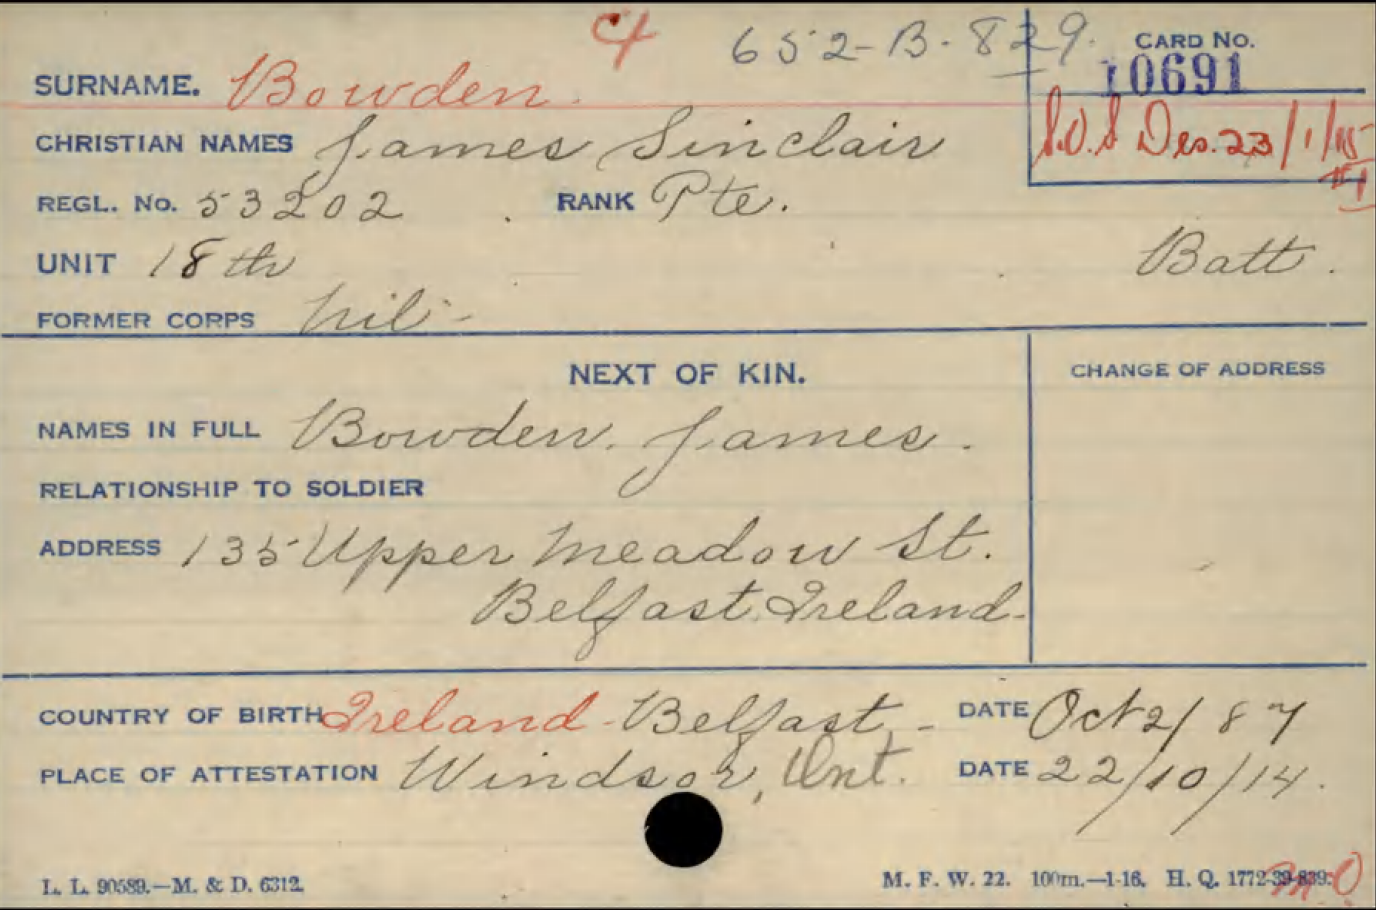 C4 652-B-829. CARD NO.
10691
SURNAME. Bowden.
S.O.S Des. 23/1/15
CHRISTIAN NAMES James Sinclair
REGL. No. 53202 RANK Pte.
UNIT 18th Batt.
FORMER CORPS Nil-
NEXT OF KIN. CHANGE OF ADDRESS
NAMES IN FULL Bowden. James.
RELATIONSHIP TO SOLDIER
ADDRESS 135 Upper Meadow St.
Belfast. Ireland.
COUNTRY OF BIRTH Ireland - Belfast, - DATE Oct 2/87
PLACE OF ATTESTATION Windsor, Ont. DATE 22/10/14.
L. L. 90589.—M. & D. 6312. M. F. W. 22. 100m.—1-16. H. Q. 1772-39-839.